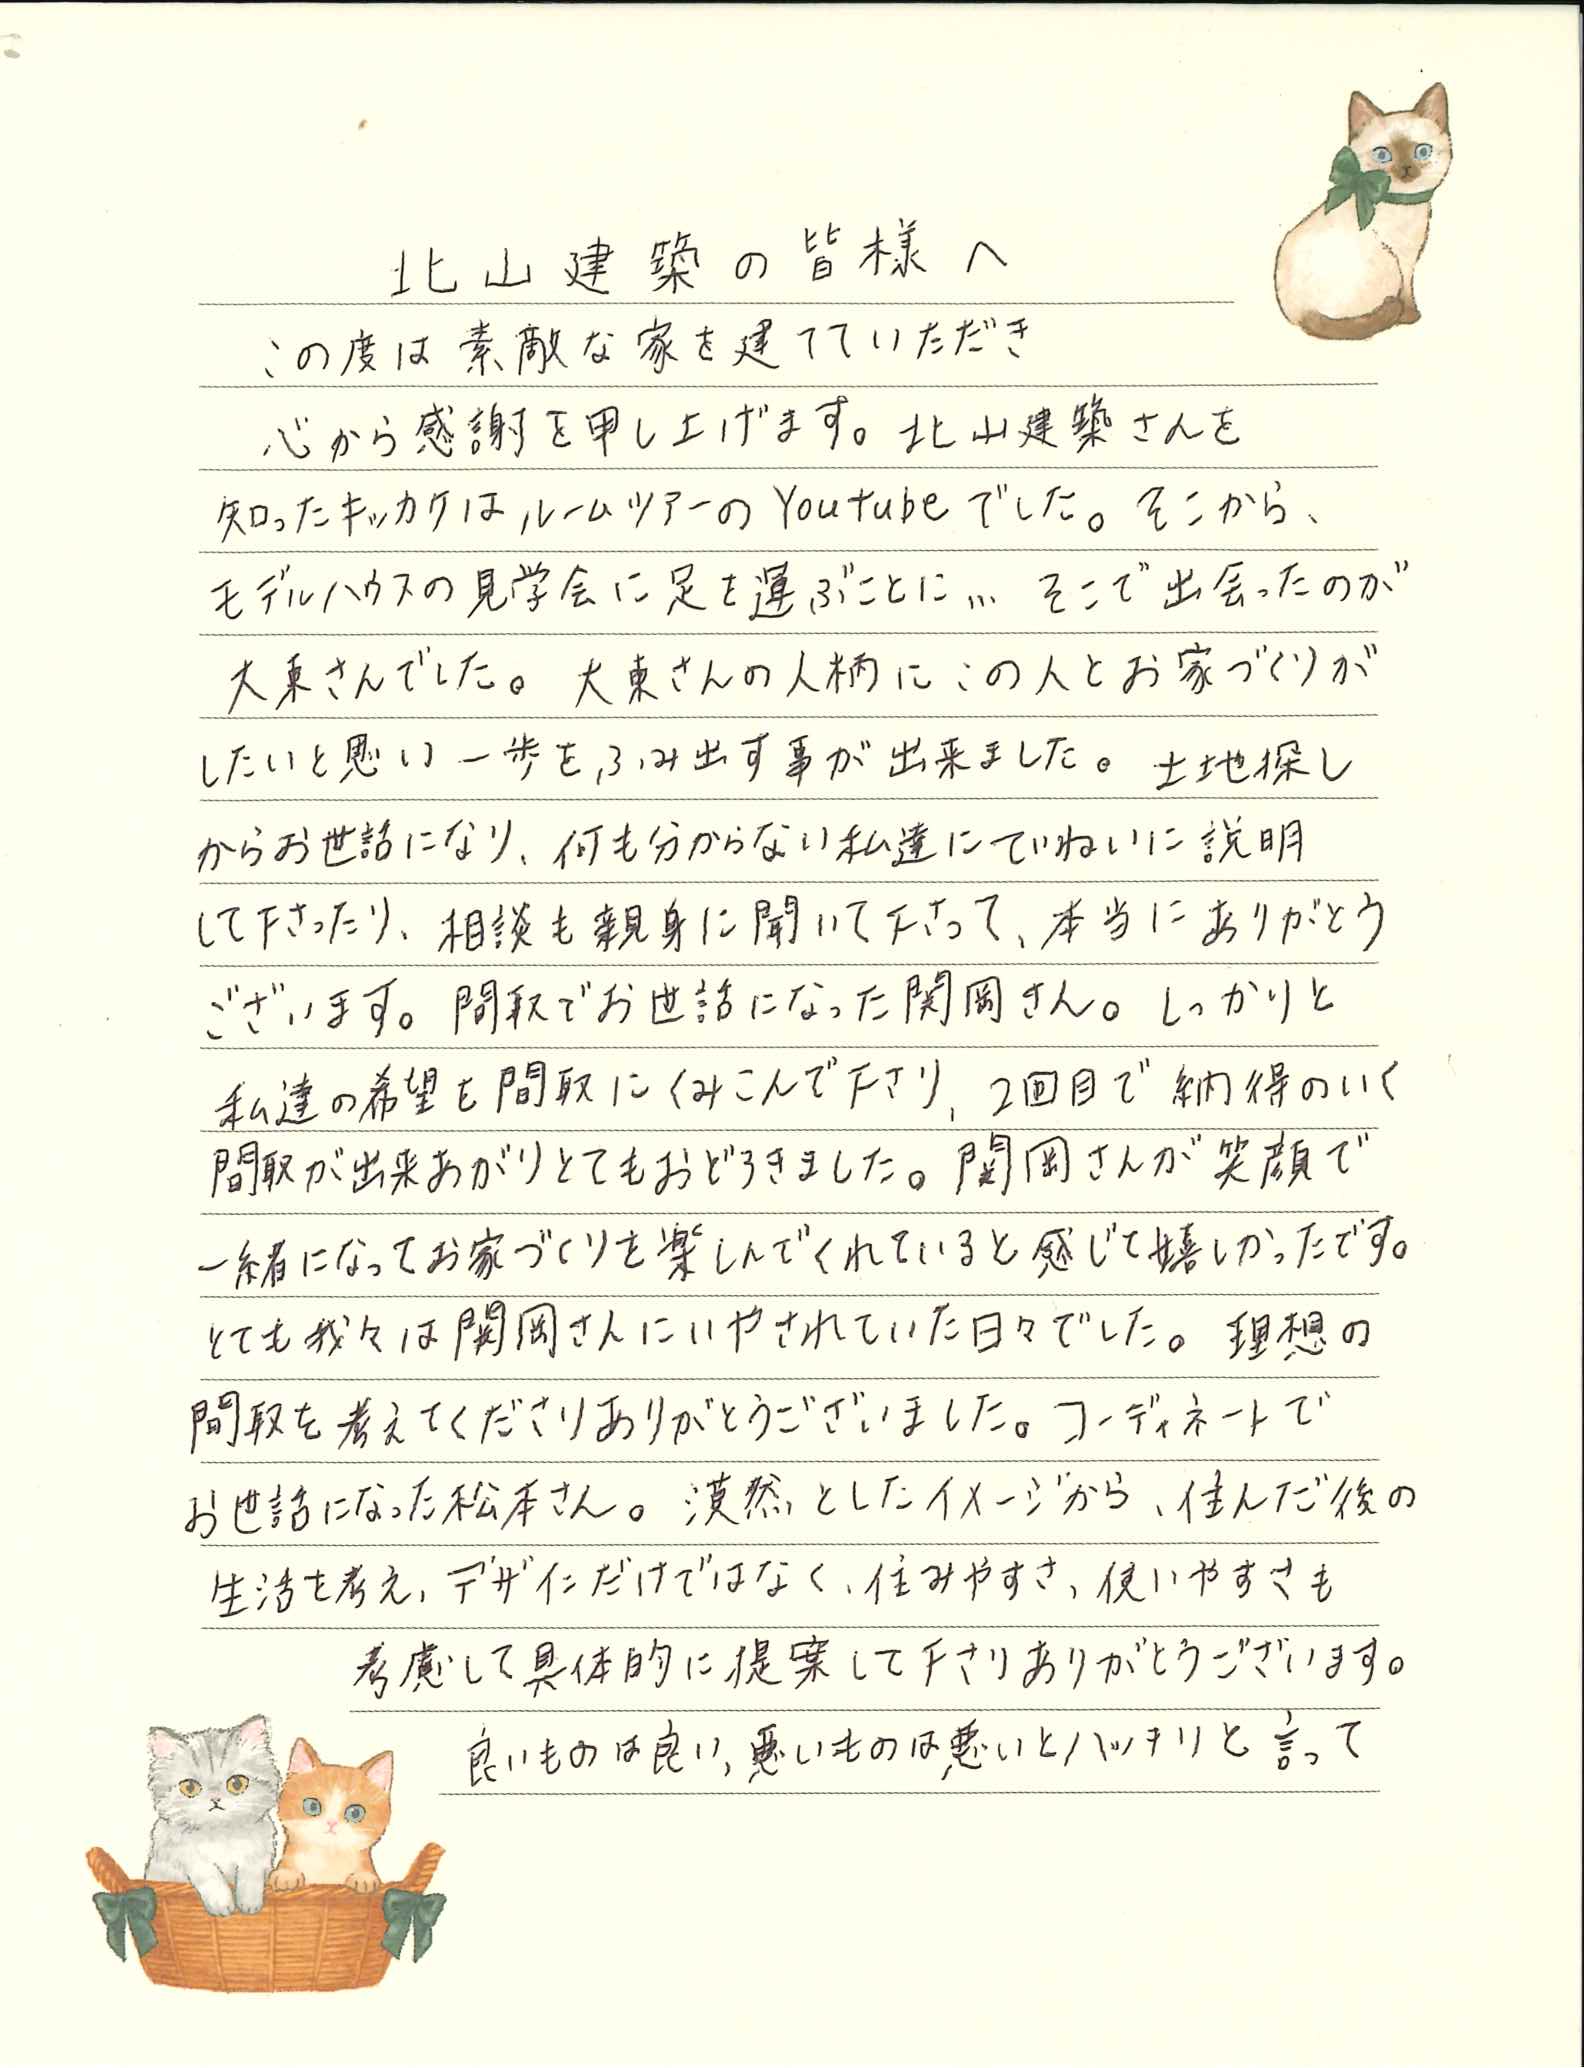 北山建築の皆様へ
この度は素敵な家を建てていただき
心から感謝を申し上げます。北山建築さんを
知ったキッカケはルームツアーのYoutubeでした。そこから、
モデルハウスの見学会に足を運ぶことに… そこで出会ったのが
大東さんでした。大東さんの人柄にこの人とお家づくりが
したいと思い一歩をふみ出す事が出来ました。土地探し
からお世話になり、何も分からない私達にていねいに説明
して下さったり、相談も親身に聞いて下さって、本当にありがとう
ございます。間取でお世話になった関岡さん。しっかりと
私達の希望を間取にくみこんで下さり、2回目で納得のいく
間取が出来あがりとてもおどろきました。関岡さんが笑顔で
一緒になってお家づくりを楽しんでくれていると感じて嬉しかったです。
とても我々は関岡さんにいやされていた日々でした。理想の
間取を考えてくださりありがとうございました。コーディネートで
お世話になった松本さん。漠然としたイメージから、住んだ後の
生活を考え、デザインだけではなく、住みやすさ、使いやすさも
考慮して具体的に提案して下さりありがとうございます。
良いものは良い、悪いものは悪いとハッキリと言って